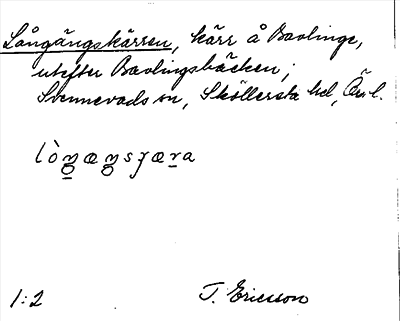 Långängskärren, kärr å Bavlinge,
utefter Bavlingsbäcken;
Svennevads sn, Sköllersta hd, Ör l.
1:2 T. Ericsson